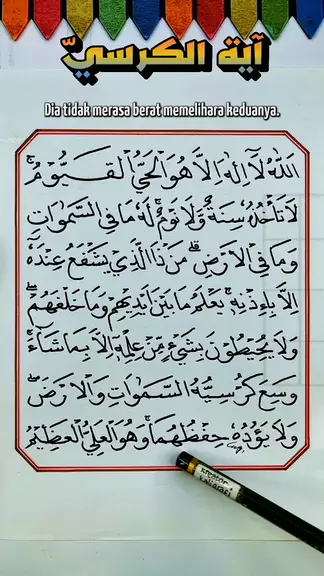 آية الكرسيّ
Dia tidak merasa berat memelihara keduanya.
اَللّٰهُ لَآ اِلٰهَ اِلَّا هُوَ الْحَيُّ الْقَيُّوْمُ ەۚ
لَا تَأْخُذُهٗ سِنَةٌ وَّلَا نَوْمٌۗ لَهٗ مَا فِى السَّمٰوٰتِ
وَمَا فِى الْاَرْضِۗ مَنْ ذَا الَّذِيْ يَشْفَعُ عِنْدَهٗٓ
اِلَّا بِاِذْنِهٖۗ يَعْلَمُ مَا بَيْنَ اَيْدِيْهِمْ وَمَا خَلْفَهُمْۚ
وَلَا يُحِيْطُوْنَ بِشَيْءٍ مِّنْ عِلْمِهٖٓ اِلَّا بِمَا شَاۤءَۚ
وَسِعَ كُرْسِيُّهُ السَّمٰوٰتِ وَالْاَرْضَۚ
وَلَا يَـُٔوْدُهٗ حِفْظُهُمَاۚ وَهُوَ الْعَلِيُّ الْعَظِيْمُ
creator
kaligrafi